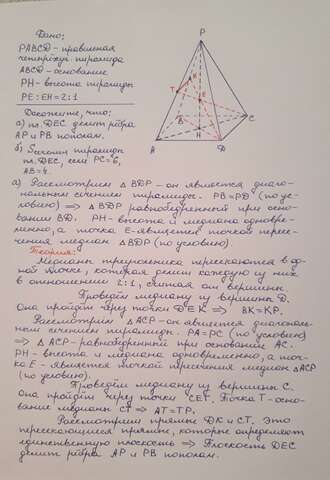 Дано:
PABCD - правильная
четырёхуг. пирамида
ABCD - основание
PH - высота пирамиды
PE : EH = 2:1
Доказать, что:
а) пл. DEC делит рёбра
AP и PB пополам.
б) Sсечения пирамиды
пл. DEC, если PC=6,
AB=4.
P
T
K
E
B
C
H
A
D
а) Рассмотрим △ BDP - он является диаго-
нальным сечением пирамиды. PB=PD (по ус-
ловию) ⟹ △ BDP равнобедренный при осно-
вании BD. PH - высота и медиана одновре-
менно, а точка E - является точкой пересе-
чения медиан △BDP (по условию).
Теория:
Медианы треугольника пересекаются в од-
ной точке, которая делит каждую из них
в отношении 2:1, считая от вершины.
Проведём медиану из вершины D.
Она пройдёт через точки D E K ⟹ BK=KP.
Рассмотрим △ACP - он является диагональ-
ным сечением пирамиды. PA=PC (по условию)
⟹ △ ACP - равнобедренный при основании AC.
PH - высота и медиана одновременно, а точ-
ка E - является точкой пересечения медиан △ACP
(по условию).
Проведём медиану из вершины C.
Она пройдёт через точки CET. Точка T - осно-
вание медианы CT ⟹ AT=TP.
Рассмотрим прямые DK и CT. Это
пересекающиеся прямые, которые определяют
единственную плоскость ⟹ Плоскость DEC
делит рёбра AP и PB пополам.